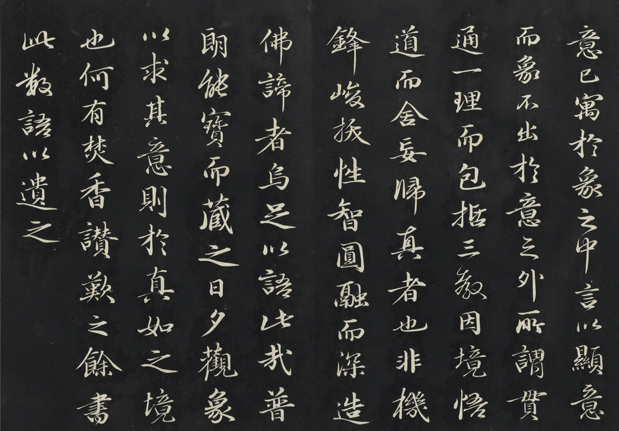 意已寓於象之中言以顯意
而象不出於意之外所謂貫
通一理而包括三教因境悟
道而舍妄歸真者也非機
鋒峻拔性智圓融而深造
佛諦者烏足以語此哉普
朗能寶而藏之日夕觀象
以求其意則於真如之境
也何有焚香讚歎之餘書
此數語以遺之